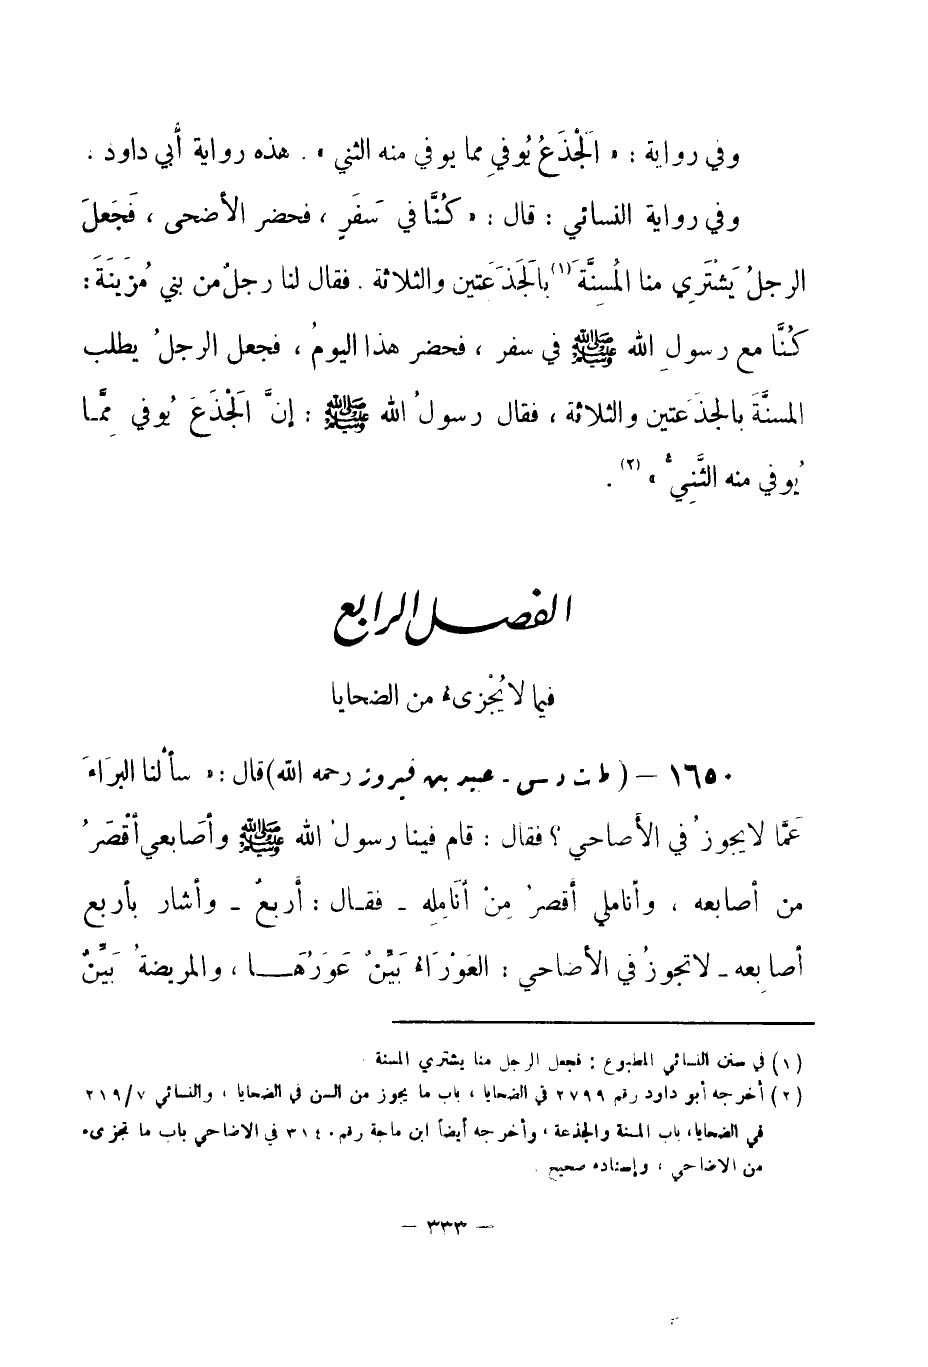 وفي رواية : « الْجَذَعُ يُوفي مما يوفي منه الثني » . هذه رواية أبي داود .
وفي رواية النسائي : قال : « كُنَّا في سَفَرٍ ، فحضر الأضحى ، فَجَعلَ
الرجلُ يَشْتَرِي منا المُسِنَّةَ (١) بالَجَذَعَتين والثلاثة . فقال لنا رجلٌ من بني مُزَينَةَ :
كُنَّا مع رسولِ الله ﷺ في سفر ، فحضر هذا اليومُ ، فجعل الرجلُ يطلب
المسنَّةَ بالجذَعتين والثلاثة ، فقال رسولُ الله ﷺ : إنَّ الَجْذَعَ يُوفي مِمَّـا
يُوفي منه الثَّنِيُّ » (٢) .
الفصل الرابع
فيما لا يُجْزىء من الضحايا
١٦٥٠ – ( ط ت د س - عبيد بن فيروز رحمه الله) قال : « سألنا البَراءَ
عَمَّا لا يجوزُ في الأَضاحي ؟ فقال : قام فينا رسولُ الله ﷺ وأصَابعي أقْصَرُ
من أصابعه ، وأناملي أَقصرُ مِنْ أَنَامِله ـ فقـال : أَربعٌ ـ وأشار بأربع
أصابِعه ـ لا تجوزُ في الأضاحي : العَوْرَاءُ بَيِّنٌ عَوَرُهَــا ، والمريضةُ بَيِّنٌ
(١) في سنن النسائي المطبوع : فجعل الرجل منا يشتري المسنة .
(٢) أخرجه أبو داود رقم ٢٧٩٩ في الضحايا ، باب ما يجوز من السن في الضحايا ، والنسائي ٢١٩/٧
في الضحايا ، باب المسنة والجذعة ، وأخرجه أيضاً ابن ماجة رقم ٣١٤٠ في الاضاحي باب ما تجزىء
من الاضاحي ، وإسناده صحيح .
– ٣٣٣ –